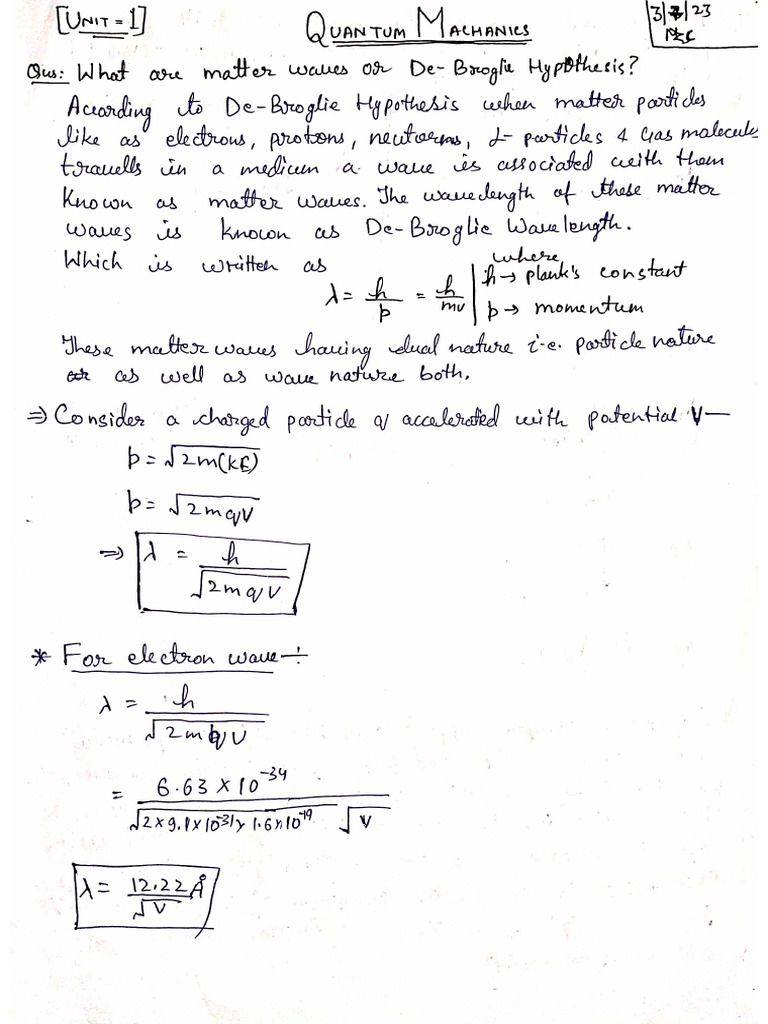 [UNIT = 1]
QUANTUM MACHANICS
3/7/23
Qus: What are matter waves or De-Broglie Hypothesis?
According to De-Broglie Hypothesis when matter particles
like as electrons, protons, neutorns, α- particles & Gas molecules
travells in a medium a wave is associated with them
Known as matter waves. The wavelength of these matter
waves is known as De-Broglie Wavelength.
Which is written as
λ = h/p = h/mv
where
h → plank's constant
p → momentum
These matter waves having dual nature i.e. particle nature
as well as wave nature both.
⇒ Consider a charged particle q accelerated with potential V—
p = √2m(KE)
p = √2mqV
⇒ λ = h/√2mqV
* For electron wave ÷
λ = h/√2mqV
= 6.63 × 10^-34/√2×9.1×10^-31×1.6×10^-19 √V
λ = 12.22/√V Å